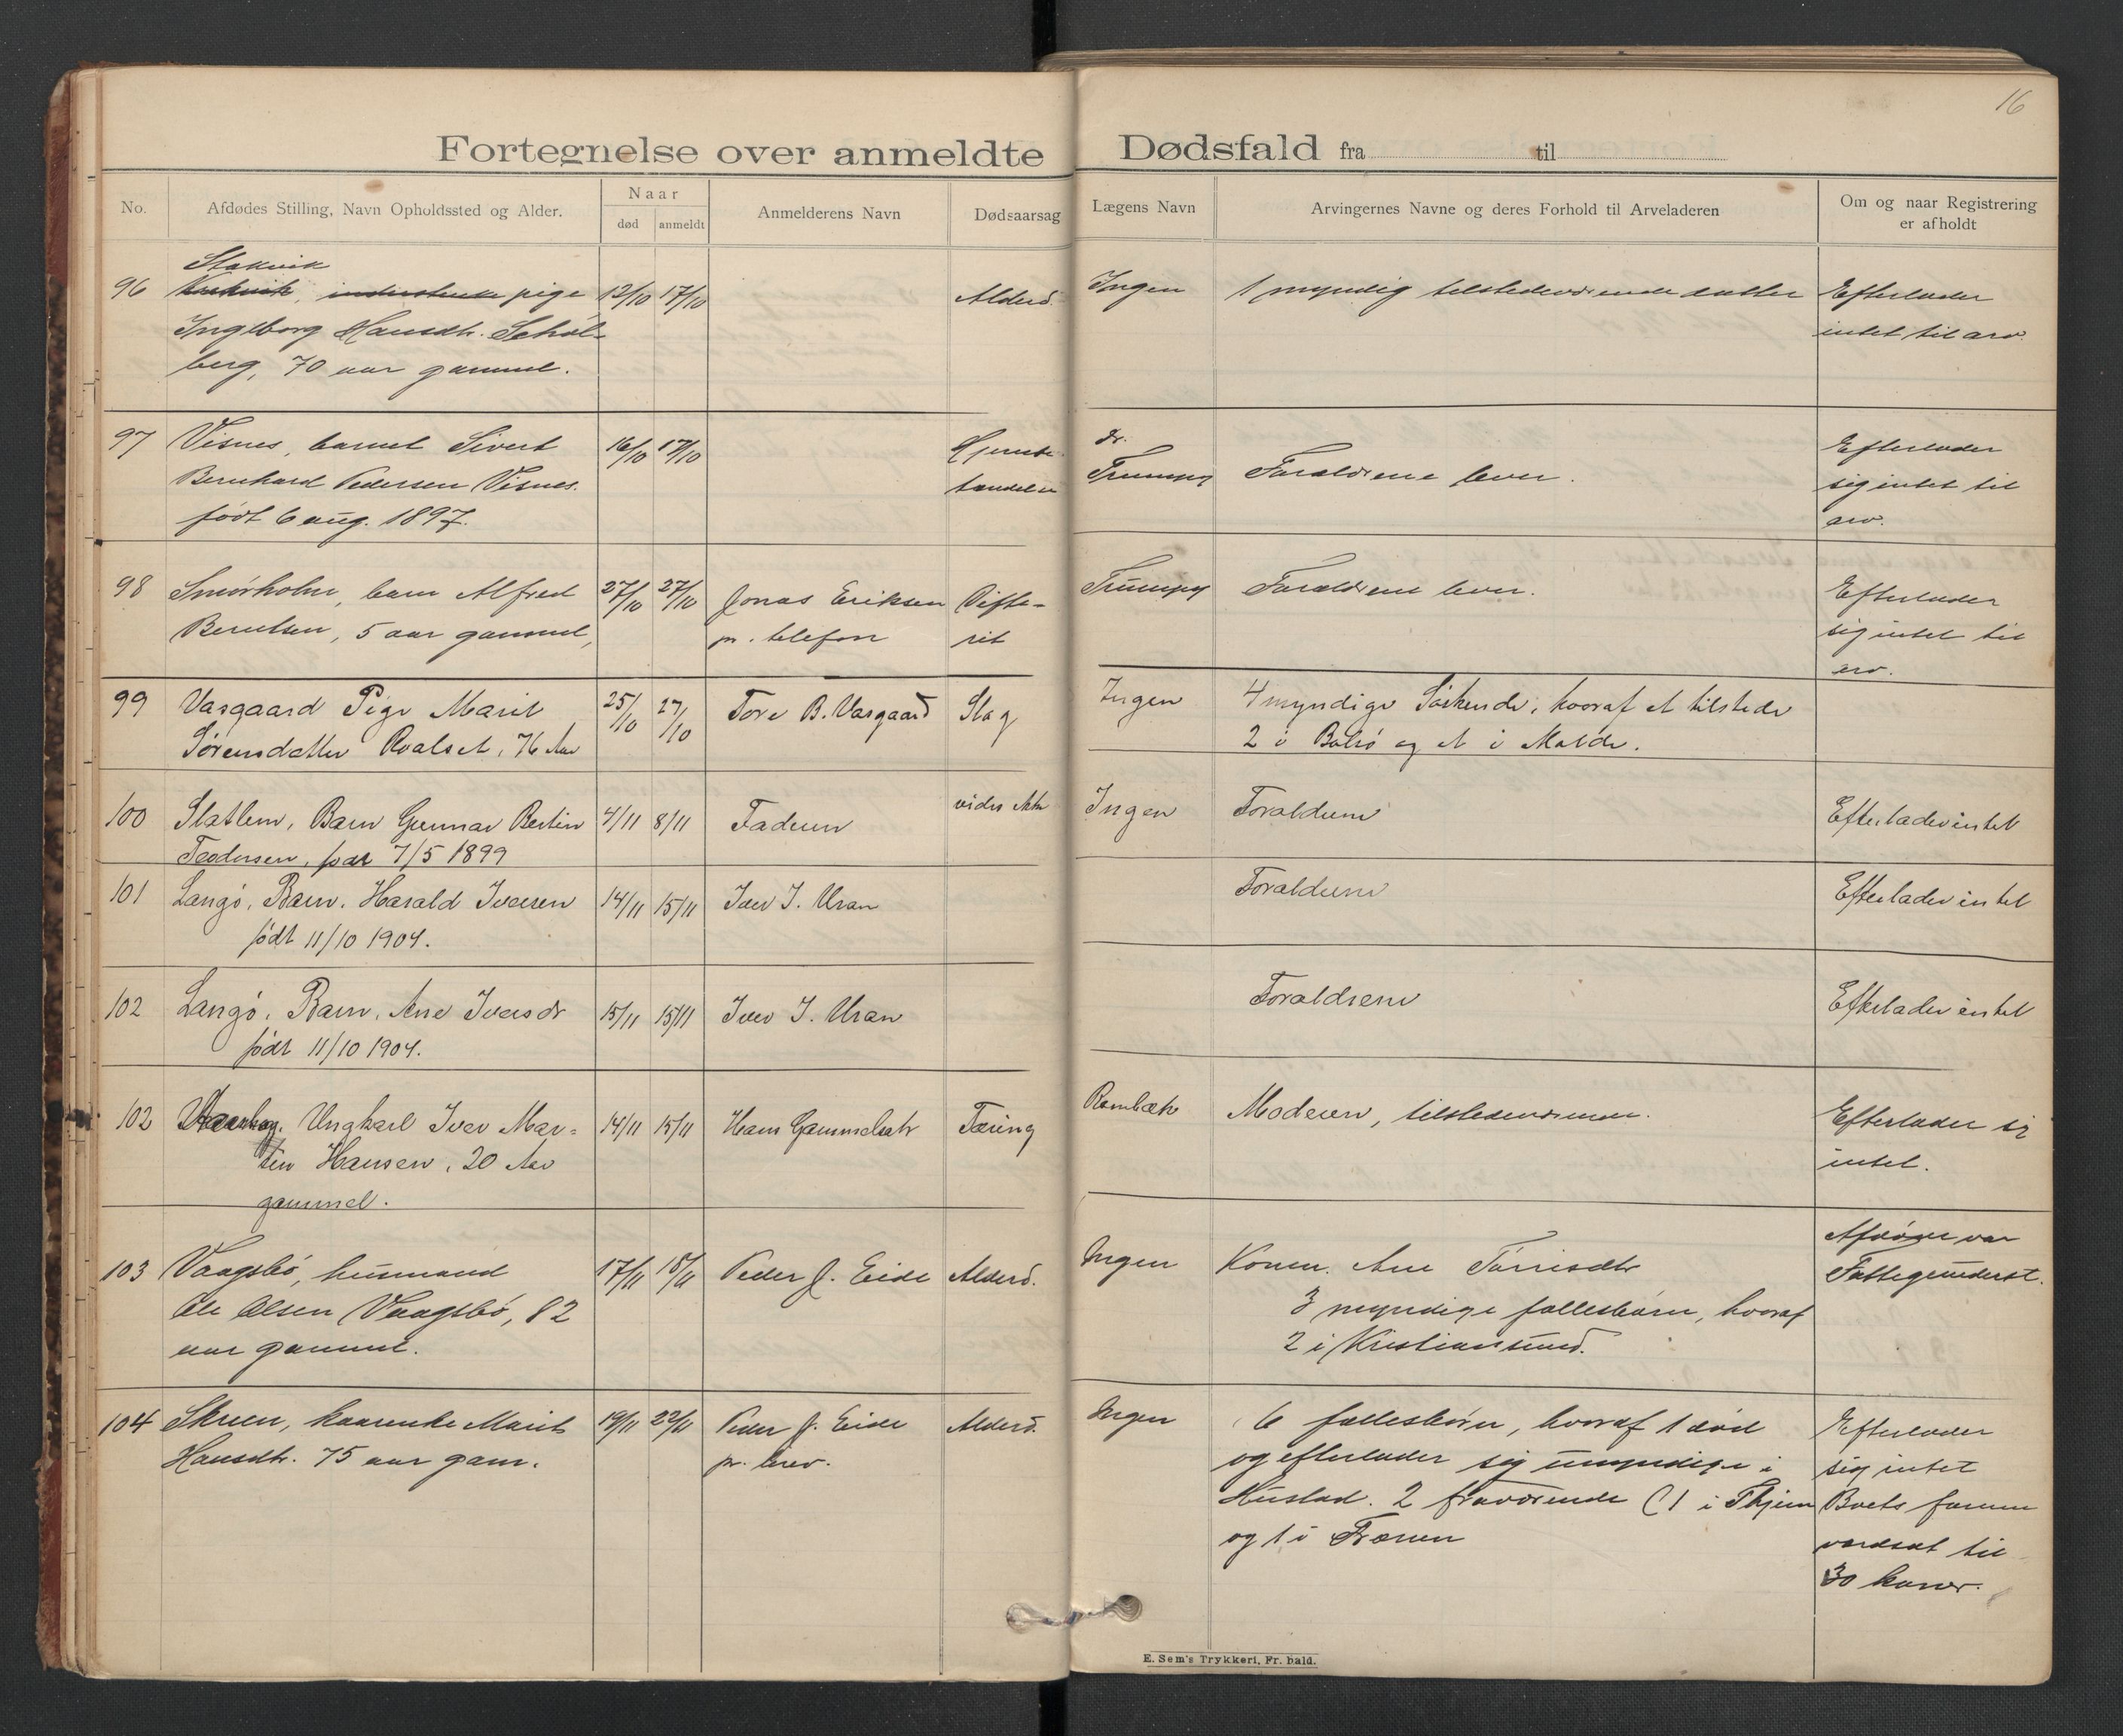 16
Fortegnelse over anmeldte Dødsfald fra til
No.
Afdødes Stilling, Navn Opholdssted og Alder.
Naar
død
anmeldt
Anmelderens Navn
Dødsaarsag
Lægens Navn
Arvingernes Navne og deres Forhold til Arveladeren
Om og naar Registrering
er afholdt
Stakvik
96 pige 12/10 17/10 Alderd. Ingen 1 myndig tilstedeværende datter Efterlader
Ingeborg Hansdtr. Schøl-
berg, 70 aar gammel.
intet til arv.
97 Visnes, barnet Sivert 16/10 17/10 Dr.
Bernhard Pedersen Visnes.
født 6 aug. 1897.
Forældrene lever.
Efterlader
sig intet til
arv.
98 Smørholm, barn Alfred 27/10 27/10 Jonas Eriksen Difte-
Berntsen, 5 aar gammel, pr. telefon rit
Forældrene lever.
Efterlader
sig intet til
arv.
99 Vasgaard Pige Marit 25/10 27/10 Tore B. Vasgaard Slag Ingen 4 myndige Søskende, hvoraf et tilstede
Sørensdatter Roalset, 76 Aar
2 i Bolsø og et i Molde.
100 Slatlem, Barn Gunnar Bertin 4/11 8/11 Faderen Ingen Forældrene Efterlader intet
Pedersen, født 7/5 1899
101 Langø, Barn, Harald Iversen 14/11 15/11 Iver I. Uran Forældrene Efterlader intet
født 11/10 1904.
102 Langø, Barn, Ane Iversdr 15/11 15/11 Iver I. Uran Forældrene Efterlader intet
født 11/10 1904.
102 Ungkarl Iver Mar-
tin Hansen, 20 Aar
gammel.
14/11 15/11 Hans Gammelsæter Tæring Rombæk Moderen, tilstedeværende. Efterlader sig
intet.
103 Vaagsbø, husmand 17/11 18/11 Peder J. Eide Alderd. Ingen Konen Ane Tørrisdtr
Ole Olsen Vaagsbø, 82
aar gammel.
3 myndige fællesbørn, hvoraf
2 i Kristiansund.
Afdøde var
Fattigunderst.
104 Skreen, kaarenke Marit 19/11 22/11 Peder J. Eide Alderd. Ingen 6 fællesbørn, hvoraf 1 død
Hansdtr. 75 aar gam. pr. brev.
og efterlader sig umyndige i
Hustad. 2 fraværende (1 i Thjem
og 1 i Frænen
Efterlader
sig intet
Boets formue
værdsat til
30 kroner.
E. Sem's Trykkeri, Fr.hald.